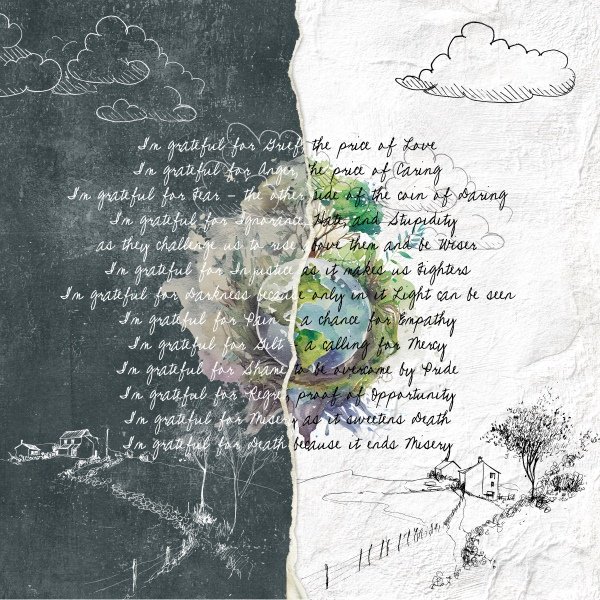 I'm grateful for Grief, the price of Love
I'm grateful for Anger, the price of Caring
I'm grateful for Fear - the other side of the coin of Daring
I'm grateful for Ignorance, Hate, and Stupidity
as they challenge us to rise above them and be Wiser
I'm grateful for Injustice as it makes us Fighters
I'm grateful for Darkness because only in it Light can be seen
I'm grateful for Pain - a chance for Empathy
I'm grateful for Gilt - a calling for Mercy
I'm grateful for Shame to be overcome by Pride
I'm grateful for Regret, proof of Opportunity
I'm grateful for Misery as it sweetens Death
I'm grateful for Death because it ends Misery